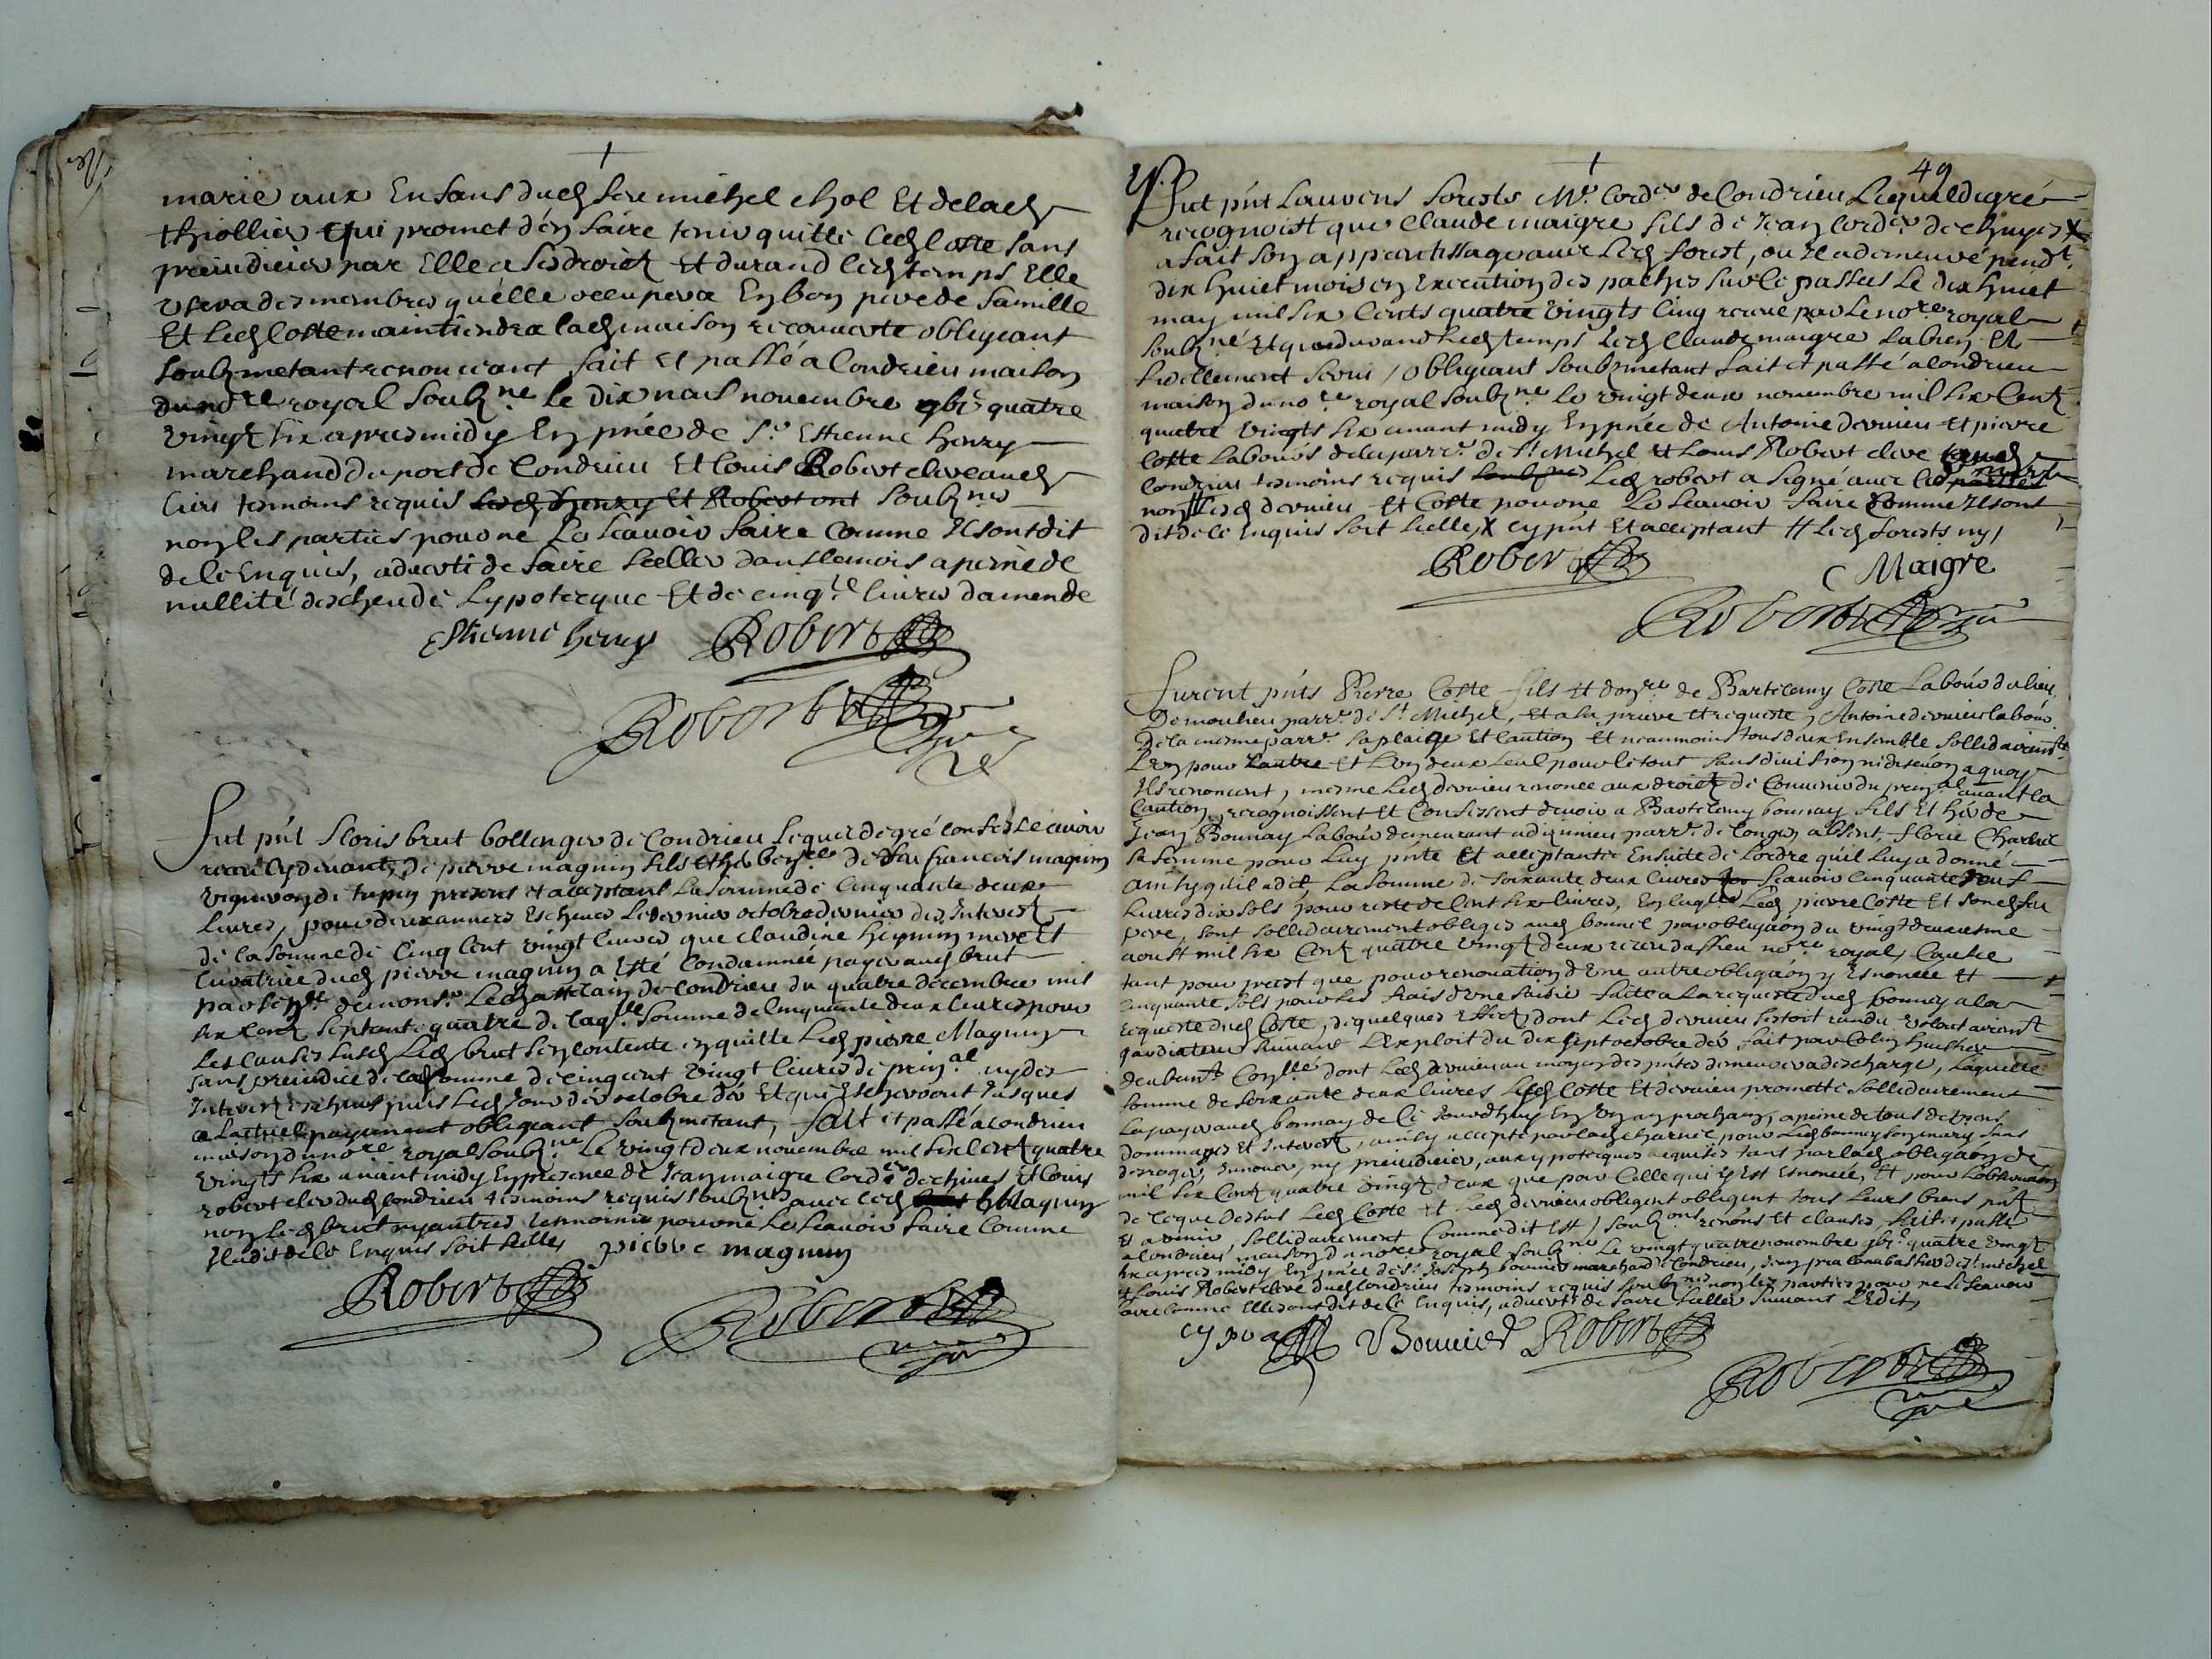 marie aux Enfans dud feu michel chol Et delad
thiollier qui promet d'en faire tenir quitte led Coste sans
preiudicier par Elle a ses droictz Et durand led temps Elle
usera des membres qu'elle occupera En bon pere de famille
Et led Coste maintiendra lad maison recouverte obligeant
soubzmetant renonciant fait et passé a Condrieu maison
du nore royal soubzne le dix neuf novembre quatre
vingtz six apres midy En pnce de Sr Estienne henry
marchand du port de Condrieu Et Louis Robert clerc aud
lieu tesmoins requis lesd henry et Robert ont soubznes
non les parties pour ne Le sçavoir faire comme Ils ont dit
de ce Enquis, adverti de faire sceller dans le mois a peine de
nullité descheu de L'ypotecque Et de cinqte livres damende
Estienne henry Robert
Robert
Fut pnt Floris brut bollanger de Condrieu Lequel de gré confesse avoir
receu cy devant de pierre magnin fils Et de feu francois magnin
vigneron de tupin present et acceptant La somme de Cinquante deux
livres, pour deux annees Escheues Le dernier octobre dernier des Interestz
de la somme de Cinq Cent vingt livres que Claudine mere Et
Curatrice dud pierre magnin a Esté Condamnée payer aud brut
par de monsr Le Chastelain de Condrieu du quatre decembre mil
six Centz septante quatre de laqlle somme de Cinquante deux livres pour
les causes susd Led brut s'en contente en quitte Led pierre Magnin
sans preiudice de lad somme de cinq cent vingt livres de prinal ny des
Interestz Escheus puis Led Jour der octobre der Et qui Escherront Jusques
a L'actuel payement obligeant soubzmetant, fait et passé a condrieu
maison du nore royal soubzne Le vingt deux novembre mil six Centz quatre
vingts six avant midy En presence de Jean maigre Cordr de chuies Et Louis
robert clerc dud Condrieu tesmoins requis soubznes avec led Magnin
non Led brut ny autres tesmoins pour ne Le sçavoir faire Comme
Il a dit de Ce Enquis soit scelle pierre magnin
Robert
Robert
49
Fut pnt Laurens Forests Mr Corder de Condrieu Lequel de gré
recognoist que Claude maigre fils de Jean Corder de chuyes X
a fait son apprentissage avec Led forest, ou Il a demeuré pendt
dix huict mois en Execution des paches sur ce passées Le dix huict
may mil six Cents quatre vingts Cinq receue par Le nore royal
soubzné Et que durand led temps Led Claude maigre La bien Et
fidellement servi / obligeant soubzmetant fait et passé a Condrieu
maison du nore royal soubzne Le vingt deux novembre mil six Centz
quatre vingts six avant midy En pnce de Antoine dervieu Et pierre
Coste Labours de la parre de St Michel Et Louis Robert clerc aud
Condrieu tesmoins requis soubznes Led robert a signé avec led parties
non Lesd dervieu Et Coste pour ne Le sçavoir faire Comme Ils ont
dit de ce Enquis soit scelle, X cy pnt Et acceptant # Led forests ny /
Robert C Maigre
Robert
Furent pnts Pierre Coste fils Et donre de Bartelemy Coste Labour du lieu
De moulieu parre de St Michel, Et a sa priere Et requeste, Antoine dervieu labour
De la mesme parre sa plaige Et Caution Et neanmoins tous deux Ensemble sollidairemt
L'un pour L'autre Et L'un deux seul pour le tout sans division ni discution a quoy
Ils renoncent, mesme Led dervieu renonce aux droictz de Convenir du prinal avant la
Caution, recognoissent Et Confessent devoir a Bartelemy bonnay fils Et her de
Jean Bonnay Labour demeurant a parre de Longes absent florie Charvet
sa femme pour Luy pnte Et acceptante Ensuite de L'ordre qu'il Luy a donné
ainsy qu'il a dit La somme de soixante deux livres sçavoir Cinquante neuf
Livres dix sols pour reste de Cent six livres, En laqlle Led pierre Coste Et sond feu
pere, sont sollidairement obliges aud bonnai par obligaon du vingt deuxiesme
aoust mil six Centz quatre vingtz deux receu nore royal, Causée
tant pour prest que pour renovation d'une autre obligaon y Enoncée Et
cinquante sols pour Les frais d'une saisie faite a La requeste dud bonnay a la
requeste dud Coste, de quelques Effectz dont Led dervieu sestoit rendu volontairemt
gardiateur suivant L'Exploit du dix sept octobre der, fait par Colin huissier
dont Led dervieu au moyen des pntes demeurera deschargé, Laquelle
somme de soixante deux livres Lesd Coste Et dervieu promette sollidairement
La payer aud bonnay de Ce Jourdhuy En Un an prochain, a peine de tous despens
dommages Et Interestz, ainsy accepté par lad Charvet pour Led bonnay son mary sans
desroger, Innover, ny preiudicier, aux ypotecques acquises tant par lad obligaon de
mil six Centz quatre vingtz deux que par Celle qui y Est Enoncée, Et pour L'observaon
de Ce que Dessus Led Coste Et Led dervieu obligent tous Leurs biens pntz
Et a venir, sollidairement Comme dit Est / soubzons renons Et clauses, fait et passé
a Condrieu maison du nore royal soubzne Le vingt quatre novembre quatre vingtz
six apres midy En pnce de Sr Joseph bonnier marchand Condrieu, Jean pra Cabaretier de St michel
Et Louis Robert clerc dud Condrieu tesmoins requis soubznes non les parties pour ne Le sçavoir
faire comme Elles ont dit de Ce Enquis, adverti de faire sceller suivant L'Edit,
Bonnier Robert
Robert